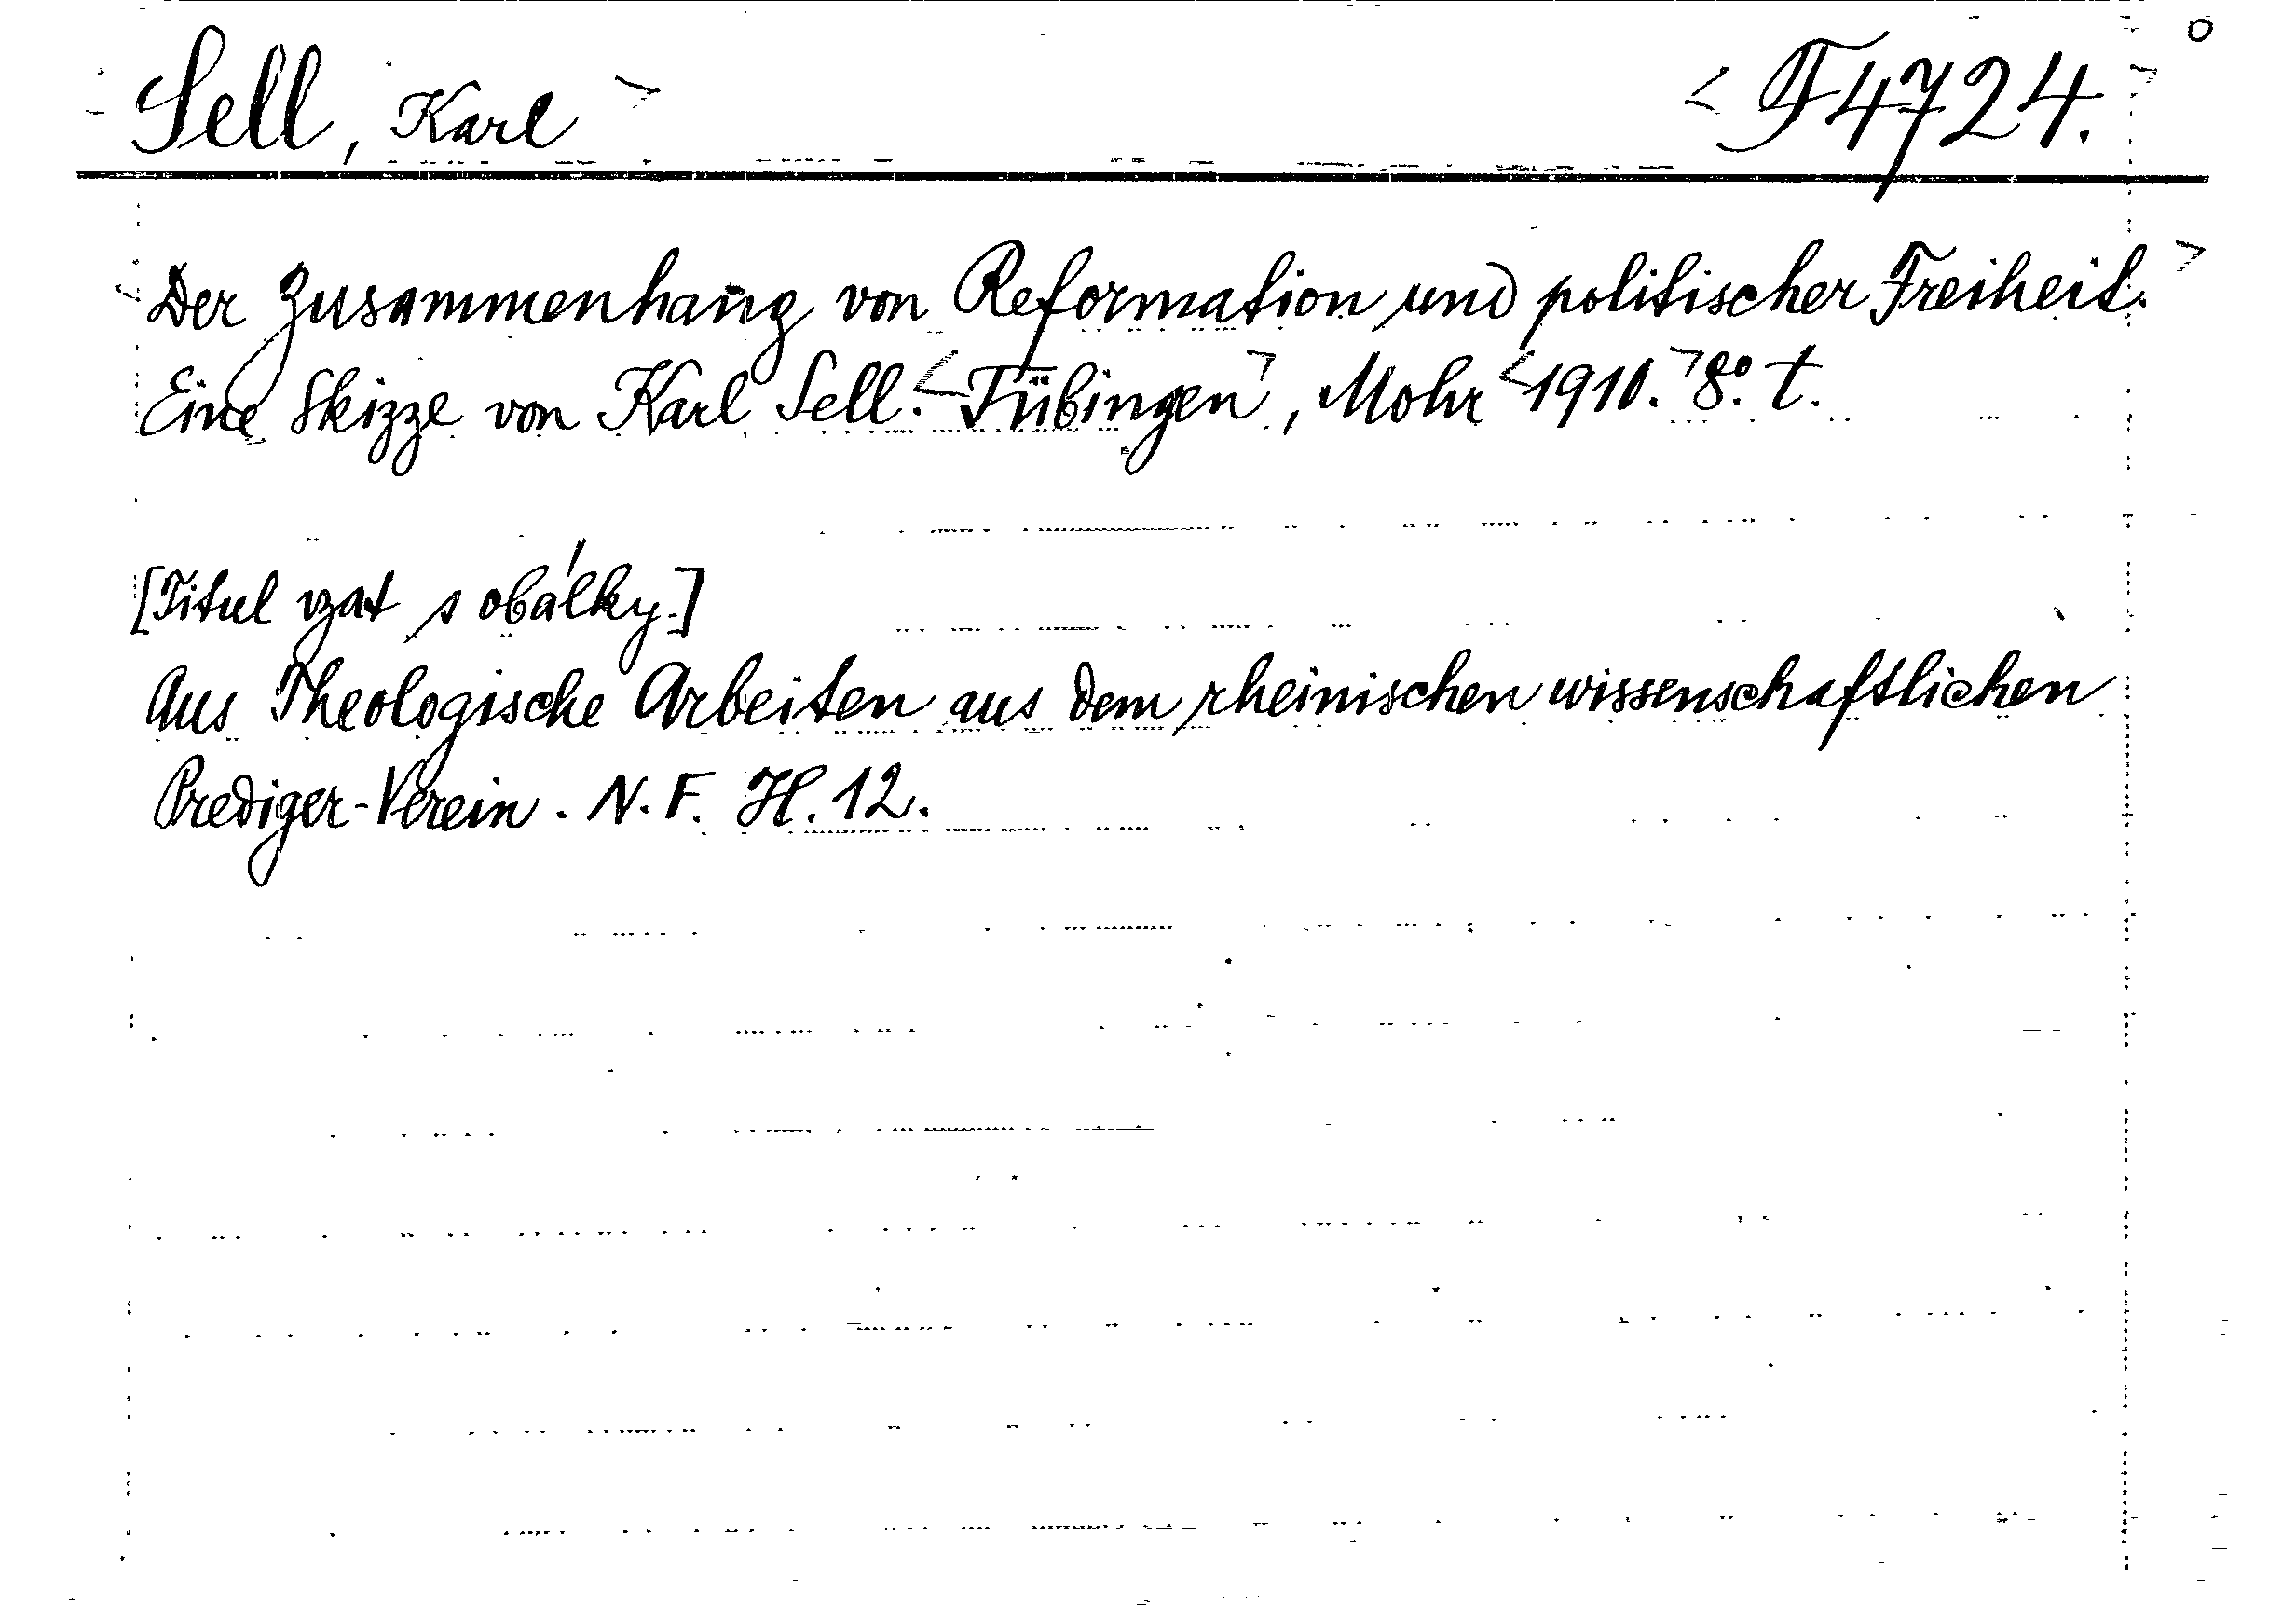 Sell, Karl
F 4724.
Der Zusammenhang von Reformation und politischer Freiheit.
Eine Skizze von Karl Sell. Tübingen, Mohr 1910. 8° t.
[Titul vzat s obálky.]
Aus Theologische Arbeiten aus dem rheinischen wissenschaftlichen
Prediger-Verein. N. F. H. 12.